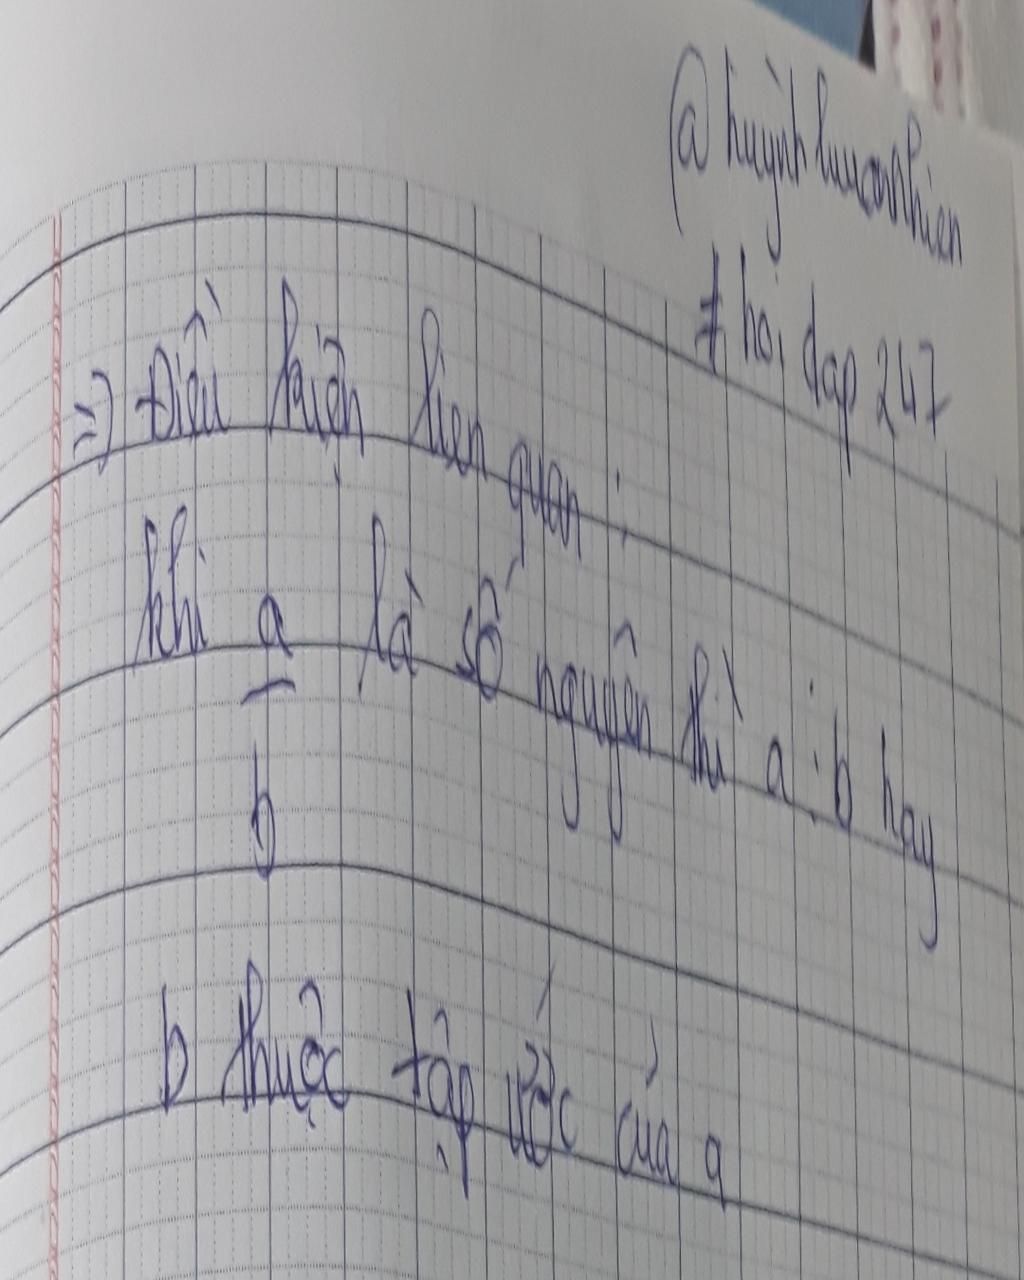 @huynhluuconhien
# hoi dap 247
=) Điều kiện lien quan :
khi a/b là số nguyên thì a ⋮ b hay
b thuộc tập ước của a